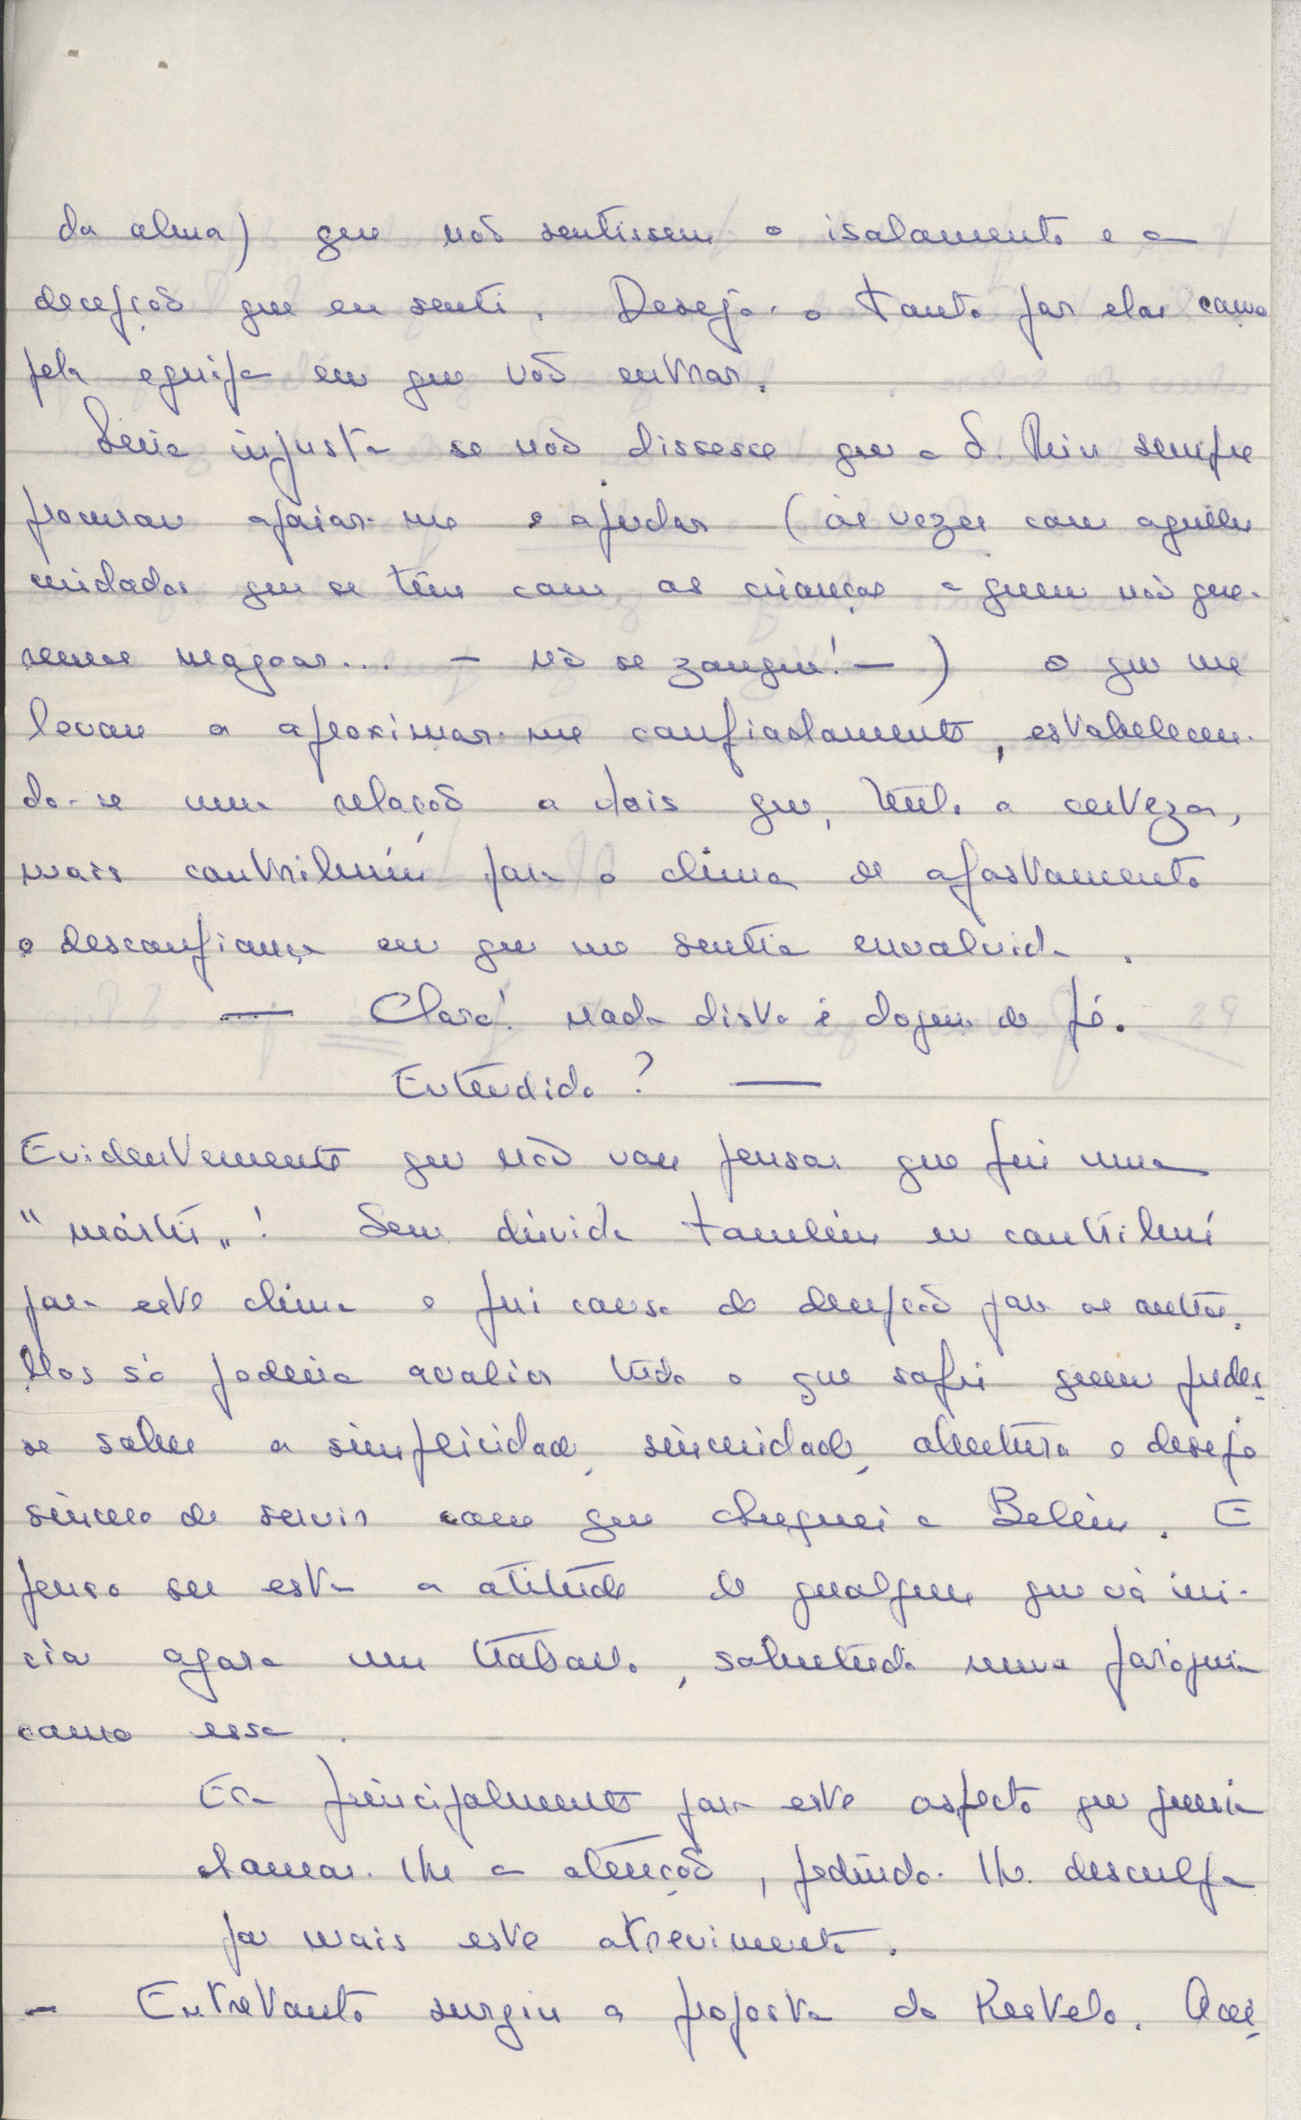 da alma) que não sentissem o isolamento e a
decepção que eu senti. Desejo-o tanto por elas como
pela equipa em que vão entrar.
Seria injusta se não dissesse que a D. sempre
procurou apoiar-me e ajudar (às vezes com aqueles
cuidados que se têm com as crianças a quem não que-
remos magoar... - não se zangue! -) o que me
levou a aproximar-me confiadamente, estabelecen-
do-se uma relação a dois que, tenho a certeza,
mais contribuíu para o clima de afastamento
e desconfiança em que me sentia envolvida.
— Claro! nada disto é dogma de fé.
Entendido? —
Evidentemente que não vou pensar que fui uma
"mártir"! Sem dúvida também eu contribuí
para este clima e fui causa de decepção para os outros.
Mas só poderia avaliar tudo o que sofri quem pudes-
se saber a simplicidade, sinceridade, abertura e desejo
sincero de servir com que cheguei a Belém. E
penso ser esta a atitude de qualquer que vá ini-
ciar agora um trabalho, sobretudo numa paróquia
como essa.
Era principalmente para este aspecto que queria
chamar-lhe a atenção, pedindo-lhe desculpa
por mais este atrevimento.
- Entretanto surgiu a proposta do Restelo. Acei-